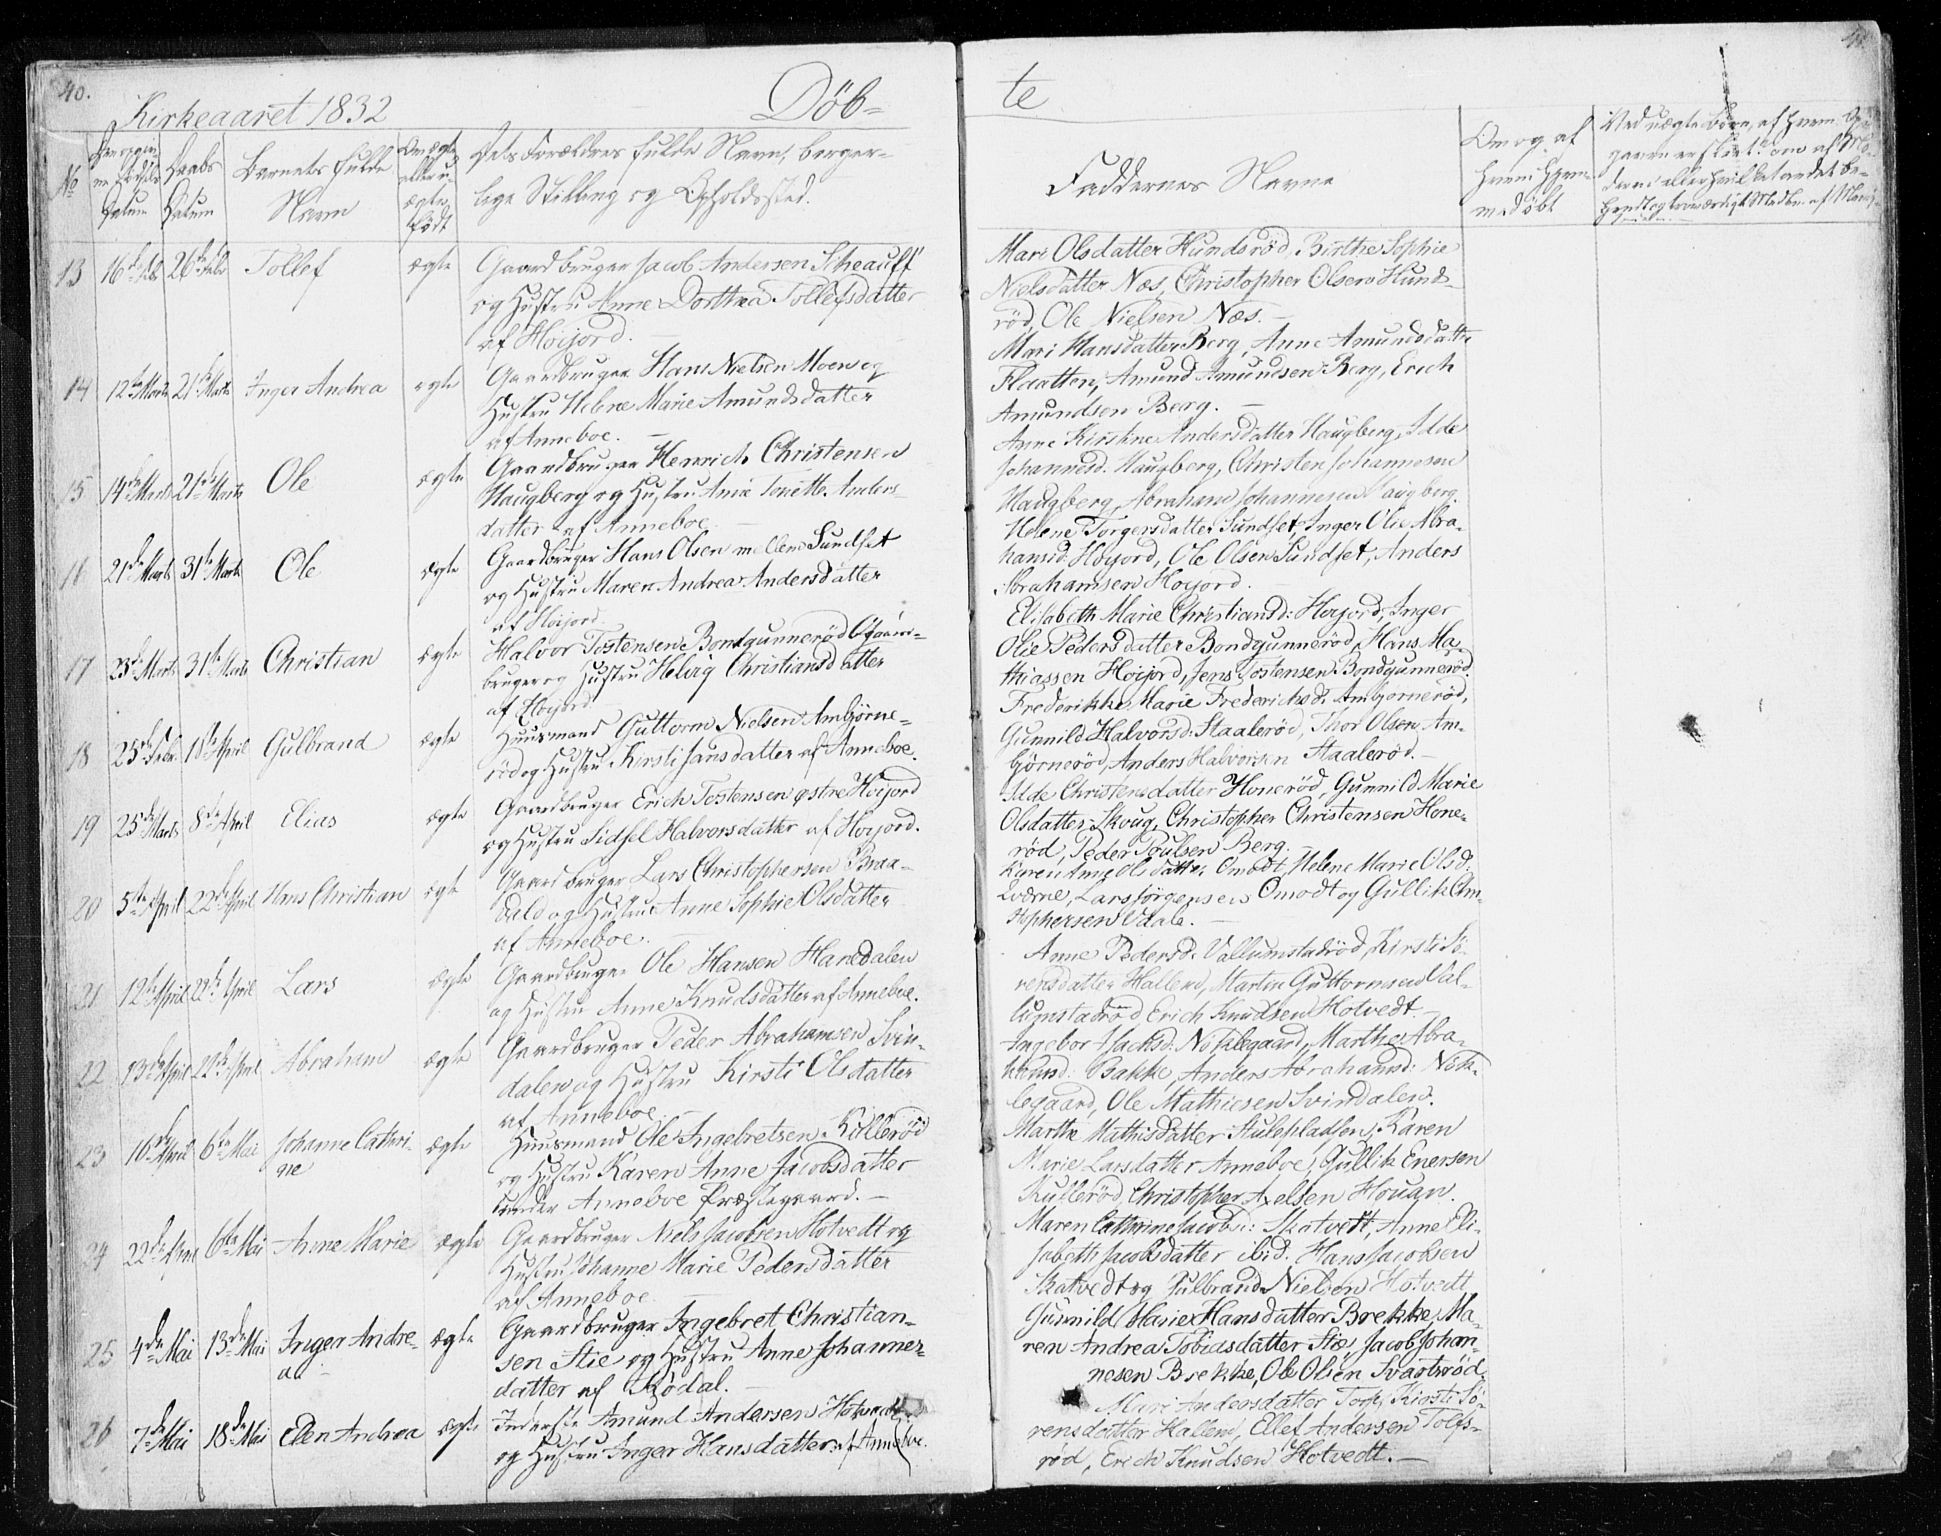 40.
Kirkeaaret 1832
Døb-
te
No
Datum
Daabs
Datum
Barnets fulde
Navn
Om ægte
eller u-
ægte
født
Dets Forældres fulde Navn, borger-
lige Stilling og Opholdssted.
Faddernes Navne
Om og af
hvem hjem-
medøbt
Ved uægte Børn, af hvem
13 16de Feb 26de Febr Tollef ægte Gaardbruger Jacob Andersen
og Hustru Anne Dorthea Tollefsdatter
af Höijord.
Mari Olsdatter Hundsröd, Birthe Sophie
Nielsdatter Næs, Christopher Olsen Hunds-
röd, Ole Nielsen Næs.
14 12te Marts 21de Marts Inger Andrea ægte Gaardbruger Hans Nielsen Moen og
Hustru Helene Marie Amundsdatter
af Anneboe.
Mari Hansdatter Berg, Anne Amundsdatter
Flaatten, Amund Amundsen Berg, Erich
Amundsen Berg.
15 14de Marts 21de Marts Ole ægte Gaardbruger Henrich Christensen
Haugberg og Hustru Anne Tonette Anders-
datter af Anneboe.
Anne Kirstine Andersdatter Haugberg, Idde
Johannesd. Haugberg, Christen Johannesen
Haugberg, Abraham Johannesen Haugberg.
16 21de Marts 31te Marts Ole ægte Gaardbruger Hans Olsen mellem Sundset
og Hustru Maren Andrea Andersdatter
af Höijord.
Helene Torgersdatter Sundset, Inger Olie Abra-
hamsd. Höyord, Ole Olsen Sundset, Anders
Abrahamsen Hoyord.
17 23de Marts 31te Marts Christian ægte Halvor Tostensen Bondgunneröd Gaard-
bruger og Hustru Helvig Christiansdatter
af Höyord
Elisabeth Marie Christiansd: Höyord, Inger
Olie Pedersdatter Bondgunneröd, Hans Ma-
thiassen Höijord, Jens Tostensen Bondgunneröd.
18 25de Febr. 1ste April Gulbrand ægte Huusmand Guttorm Nielsen Ambjörne-
röd og Hustru Kirsti Jansdatter af Anneboe.
Frederikke Marie Frederichsd. Ambjorneröd,
Gunnild Halvorsd. Staaleröd, Thor Olsen Am-
björneröd, Anders Halvorsen Staaleröd.
19 25de Marts 8de April Elias ægte Gaardbruger Erich Tostensen østre Höijord
og Hustru Sidsel Halvorsdatter af Hoyjord.
Idde Christensdatter Honeröd, Gunnild Marie
Olsdatter Skoug, Christopher Christensen Hone-
röd, Peder Poulsen Berg.
20 5te April 22de April Hans Christian ægte Gaardbruger Lars Christophersen Braa-
og Hustru Anne Sophie Olsdatter
af Anneboe.
Karen Anne Olsdatter Omodt, Helene Marie Olsd.
Qværne, Lars Jörgensen Omodt og Gullik Chri-
stophersen Odale.
21 12te April 22de April Lars ægte Gaardbruger Ole Hansen Hanedalen
og Hustru Anne Knudsdatter af Anneboe.
Anne Pedersd. Vallumstadröd, Kirsti Sö-
rensdatter Hallem, Martin Guttormsen Val-
lumstadröd Erich Knudsen Hotvedt
22 13de April 22de April Abraham ægte Gaardbruger Peder Abrahamsen Svin-
dalen og Hustru Kirsti Olsdatter
af Anneboe.
Ingebor Isachsd. Nöklegaard, Marthe Abra-
hamsd. Bakke, Anders Abrahamsd: Nök-
legaard, Ole Mathiesen Svindalen.
23 16de April 6te Mai Johanne Cathri-
ne ægte Huusmand Ole Ingebretsen Kulleröd
og Hustru Karen Anne Jacobsdatter
under Anneboe Præstegaard.
Marthe Mathisdatter Stulepladsen, Karen
Marie Larsdatter Anneboe, Gullik Enersen
Kulleröd, Christopher Axelsen Houan.
24 22de April 6te Mai Anne Marie ægte Gaardbruger Niels Jacobsen Hotvedt og
Hustru Johanne Marie Pedersdatter
af Anneboe.
Maren Cathrine Jacobsd: Skatvedt, Anne Eli-
sabeth Jacobsdatter ibid. Hans Jacobsen
Skatvedt og Gulbrand Nielsen Hotvedt
25 4de Mai 13de Mai Inger Andre-
a ægte Gaardbruger Ingebret Christian-
sen Stie og Hustru Anne Johannes-
datter af Kodal.
Gunnild Marie Hansdatter Brekke, Ma-
ren Andrea Tobiasdatter Stie, Jacob Johan-
nesen Brekke, Ole Olsen Svartsröd.
26 7de Mai 18de Mai Ellen Andrea ægte Inderste Amund Andersen Hotvedt
og Hustru Inger Hansdatter af Anneboe.
Mari Andersdatter Torp, Kirsti Sö-
rensdatter Hallem, Ellef Andersen Tolfs-
röd, Erich Knudsen Hotvedt.